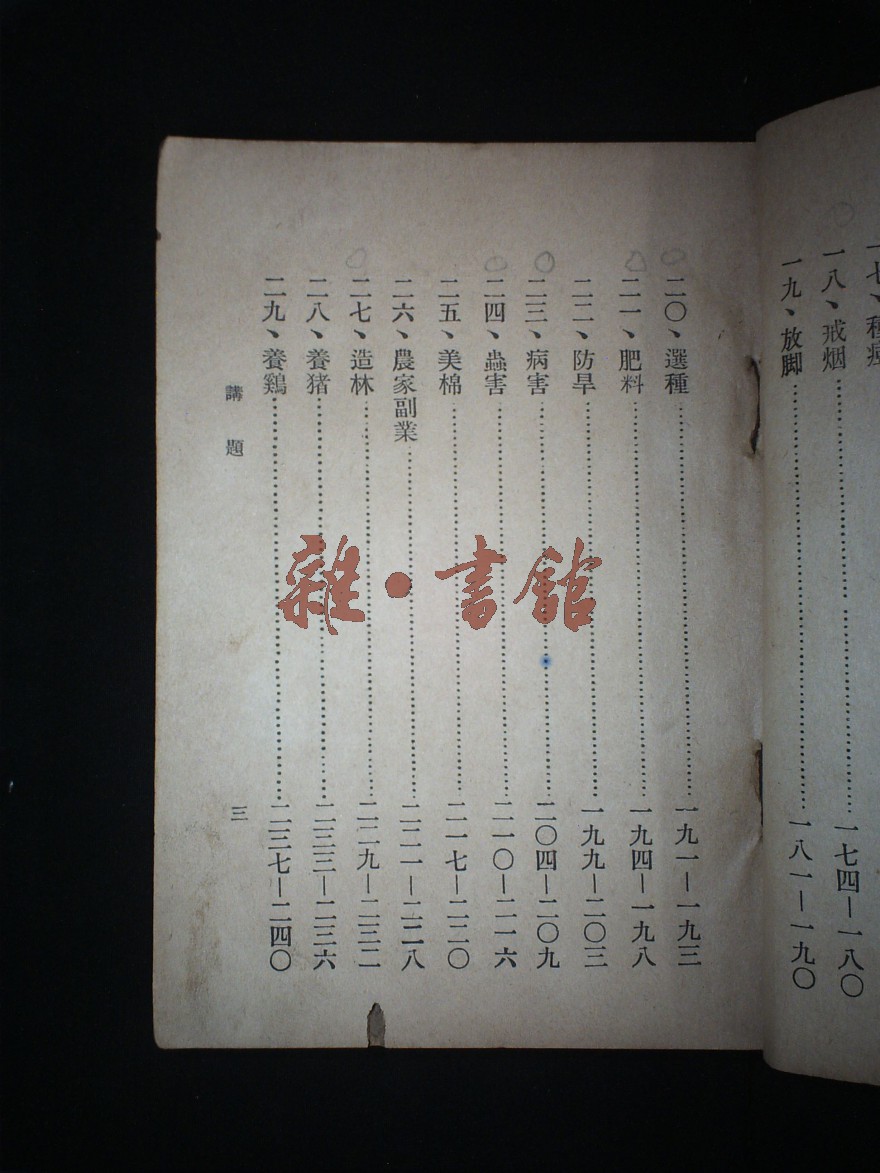 一八、戒烟……一七四—一八〇
一九、放脚……一八一—一九〇
二〇、選種……一九一—一九三
二一、肥料……一九四—一九八
二二、防旱……一九九—二〇三
二三、病害……二〇四—二〇九
二四、蟲害……二一〇—二一六
二五、美棉……二一七—二二〇
二六、農家副業……二二一—二二八
二七、造林……二二九—二三二
二八、養猪……二三三—二三六
二九、養鷄……二三七—二四〇
講題
三
雜·書館